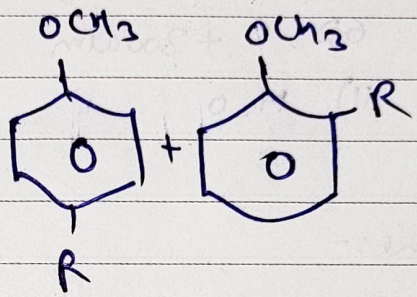 OCH3 OCH3
R
+
R